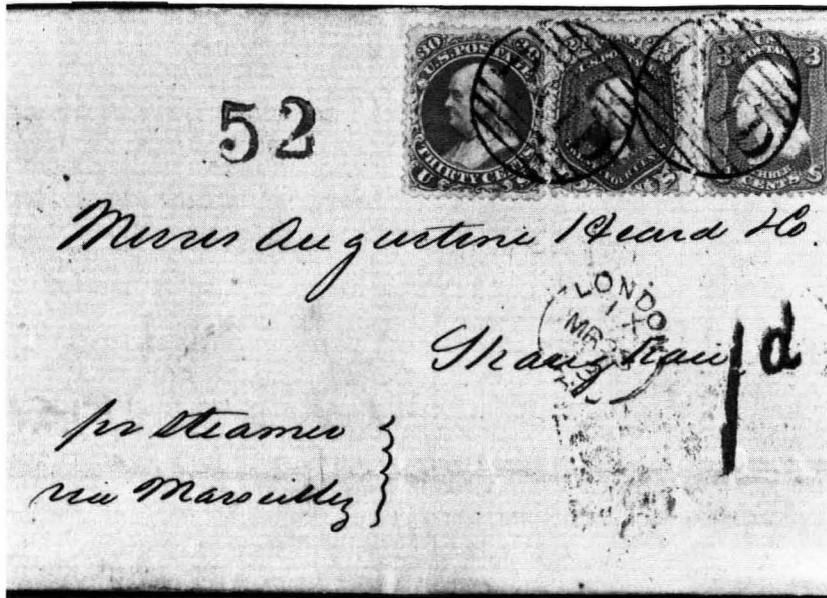 30 U.S. POSTAGE 30
THIRTY CENTS
3 3
THREE CENTS
52
Messrs Augustine Heard & Co.
LONDO
MR
Shanghai
1d
pr steamer
via Marseilles